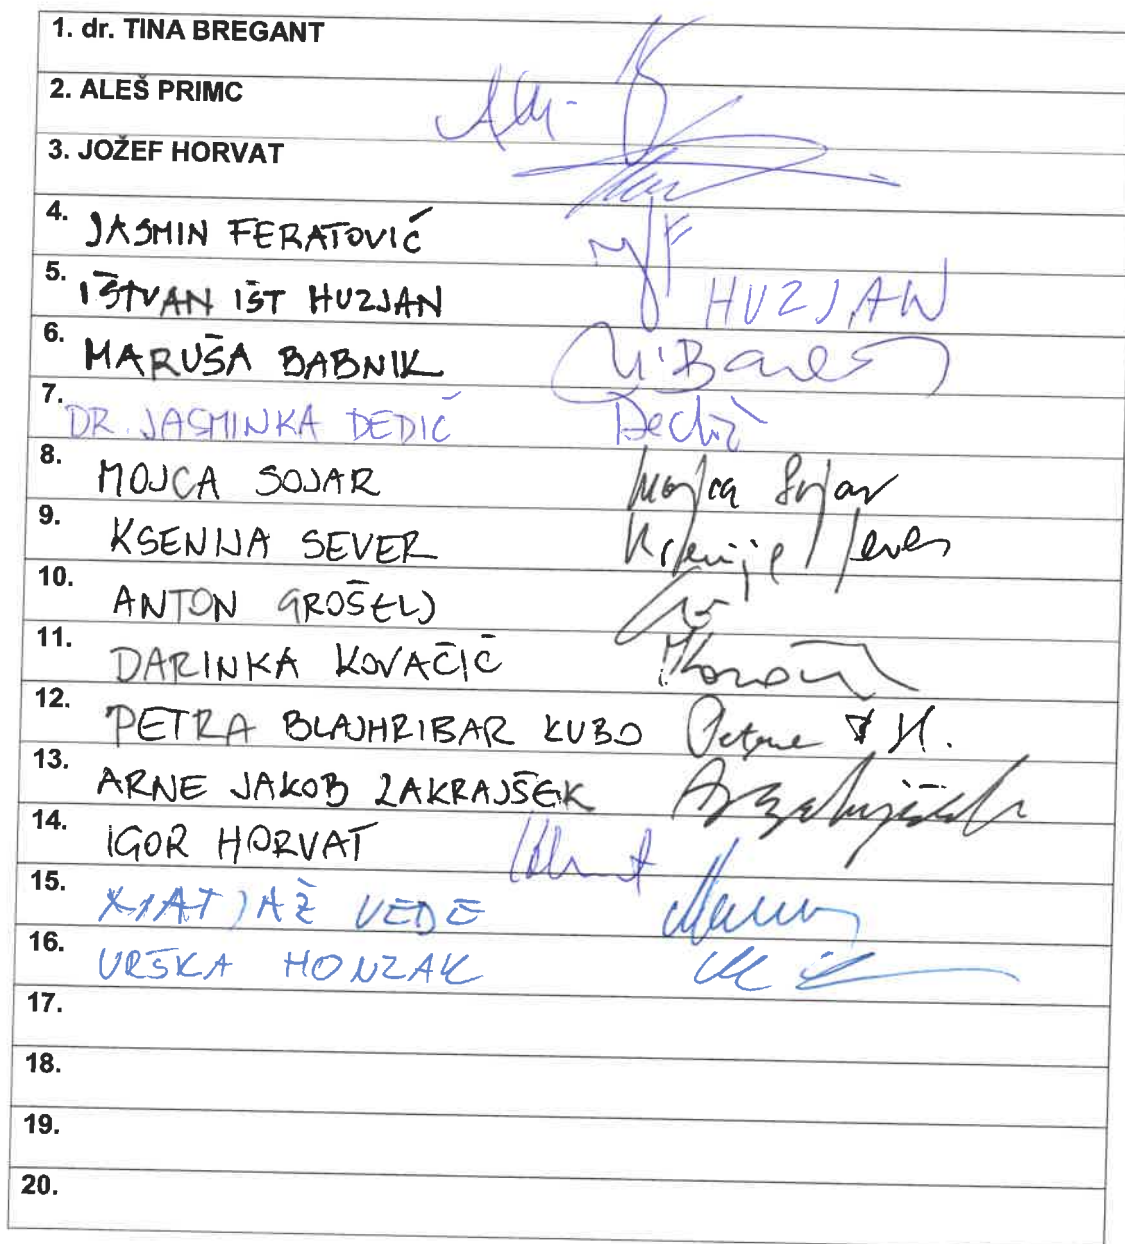 1. dr. TINA BREGANT
2. ALEŠ PRIMC
3. JOŽEF HORVAT
4. JASMIN FERATOVIĆ
5. IŠTVAN IŠT HUZJAN HUZJAN
6. MARUŠA BABNIK
7. DR. JASMINKA DEDIĆ Dedić
8. MOJCA SOJAR Mojca Sojar
9. KSENIJA SEVER Ksenija Sever
10. ANTON GROŠELJ
11. DARINKA KOVAČIČ
12. PETRA BLAJHRIBAR KUBO
13. ARNE JAKOB ZAKRAJŠEK
14. IGOR HORVAT
15. MATJAŽ VEDE
16. URŠKA HONZAK
17.
18.
19.
20.